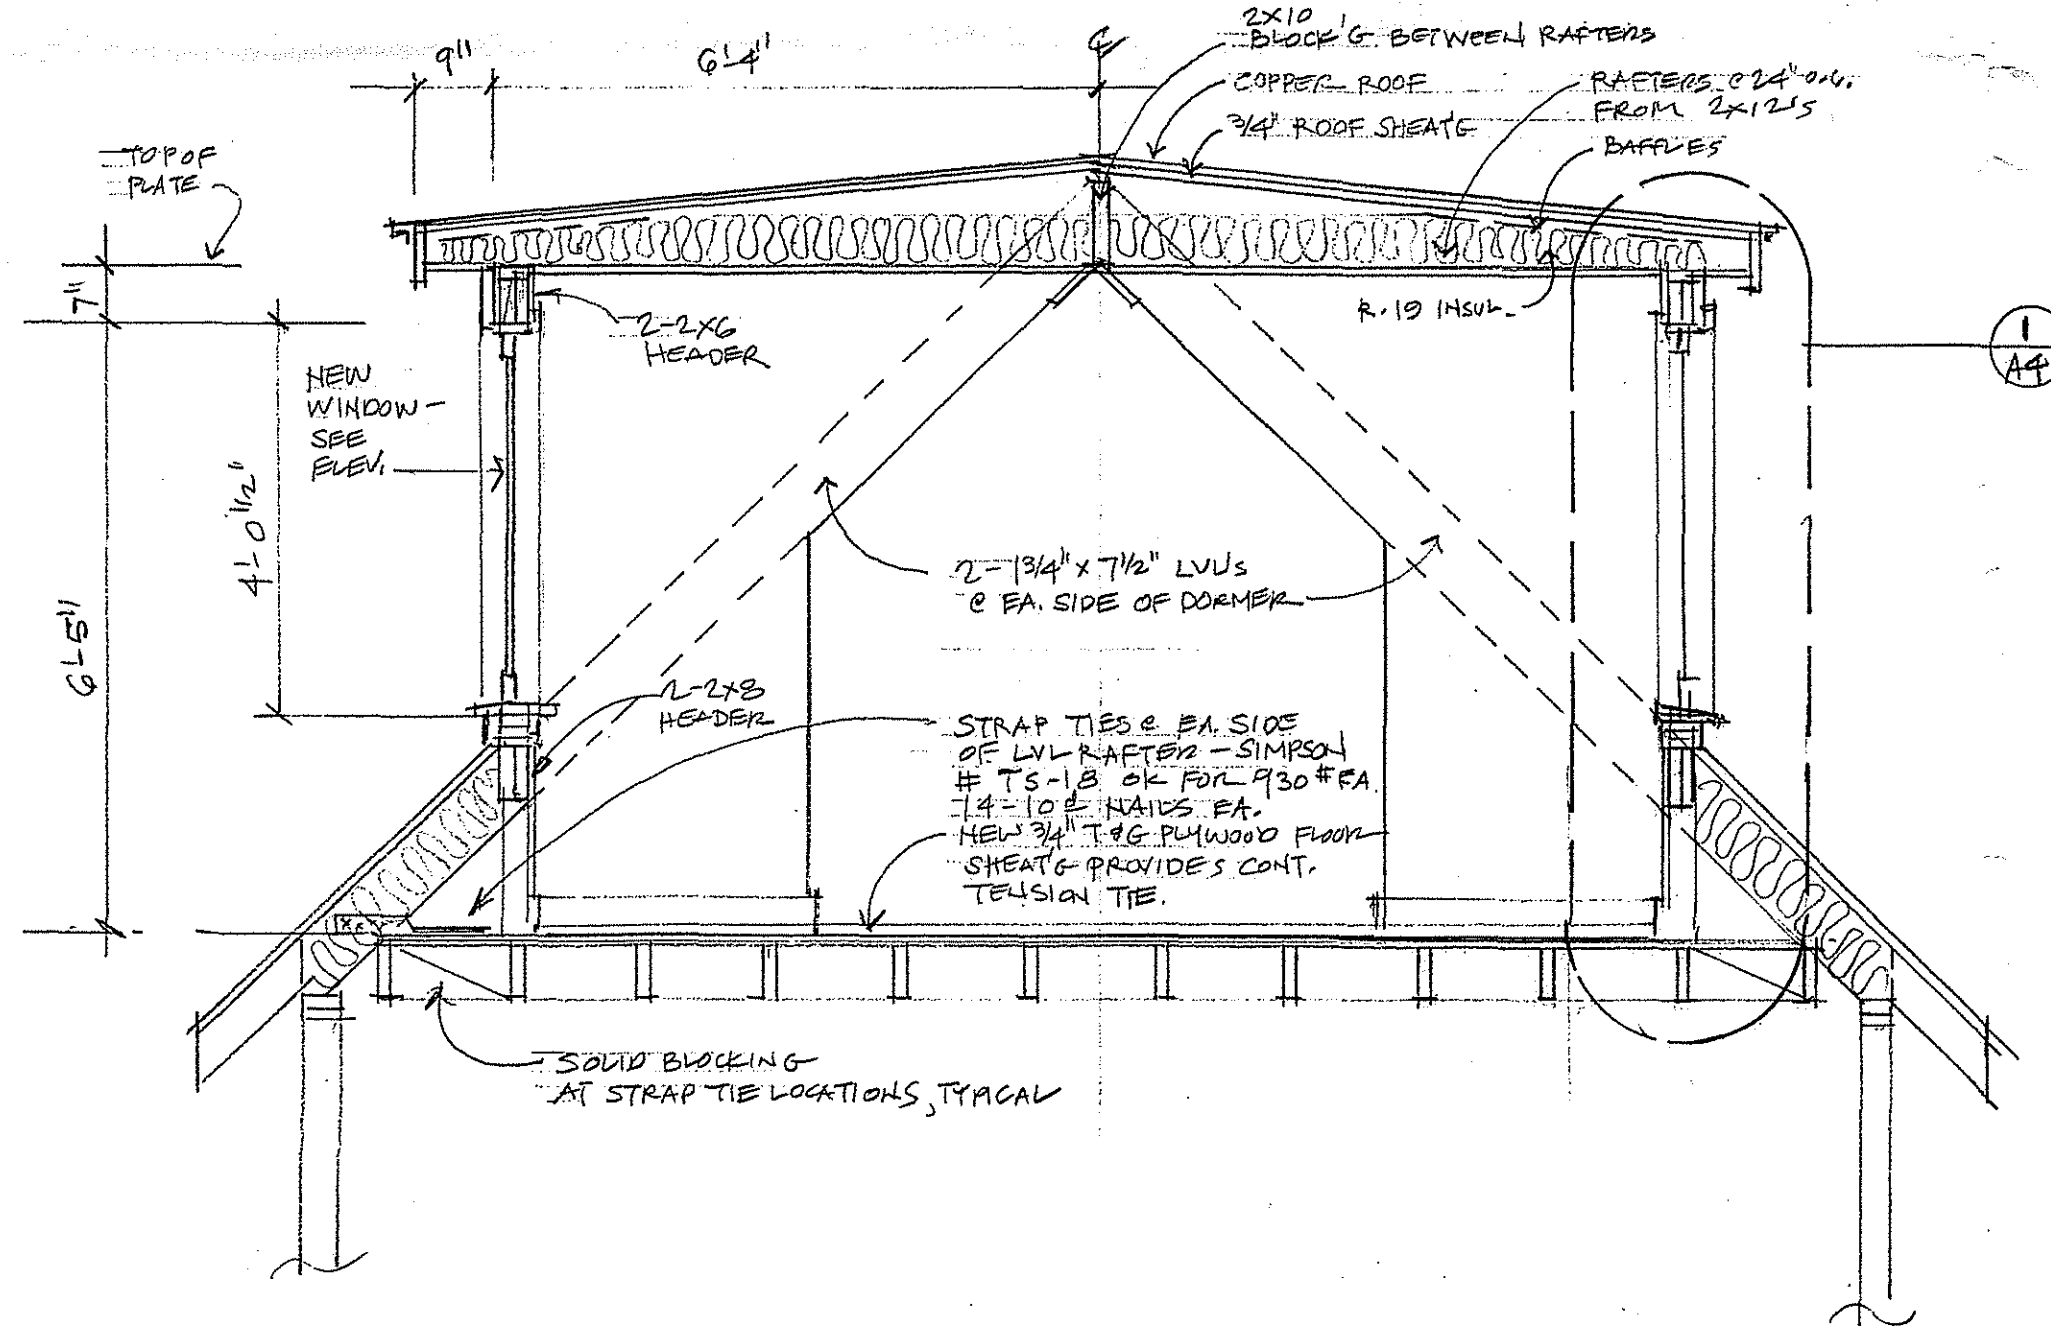 9"
6'-4"
℄
2X10
BLOCK'G. BETWEEN RAFTERS
COPPER ROOF
3/4" ROOF SHEAT'G
RAFTERS @ 24" O.C.
FROM 2X12'S
BAFFLES
TOP OF
PLATE
7"
2-2X6
HEADER
R-19 INSUL.
1
A4
NEW
WINDOW -
SEE
ELEV.
4'-0 1/2"
6'-5"
2- 1 3/4" X 7 1/2" LVL'S
@ EA. SIDE OF DORMER
2-2X8
HEADER
STRAP TIES @ EA. SIDE
OF LVL RAFTER - SIMPSON
# TS-18 OK FOR 930 # EA.
14-10d NAILS EA.
NEW 3/4" T&G PLYWOOD FLOOR
SHEAT'G PROVIDES CONT.
TENSION TIE.
SOLID BLOCKING
AT STRAP TIE LOCATIONS, TYPICAL